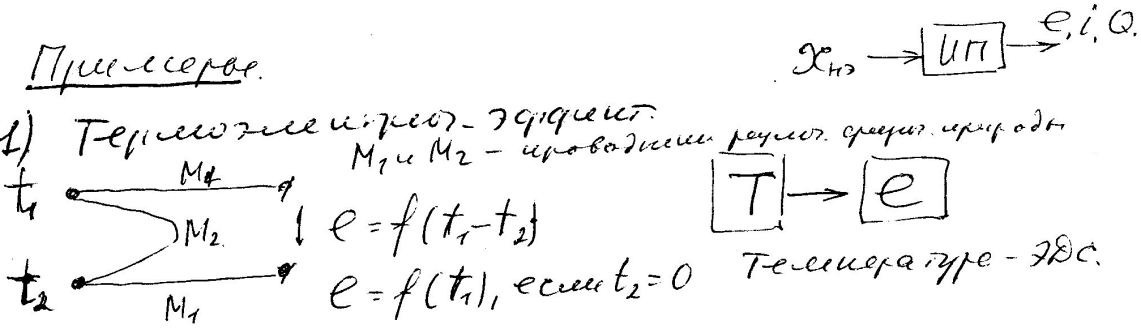 Примеры.
x нэ → ИП → e, i, Q.
1) Термоэлектрич. эффект.
M1 и M2 – проводники различ. физич. природы
t1 M1
M2
e = f(t1-t2)
T → e
t2 M1
e = f(t1), если t2=0
Температура – ЭДС.